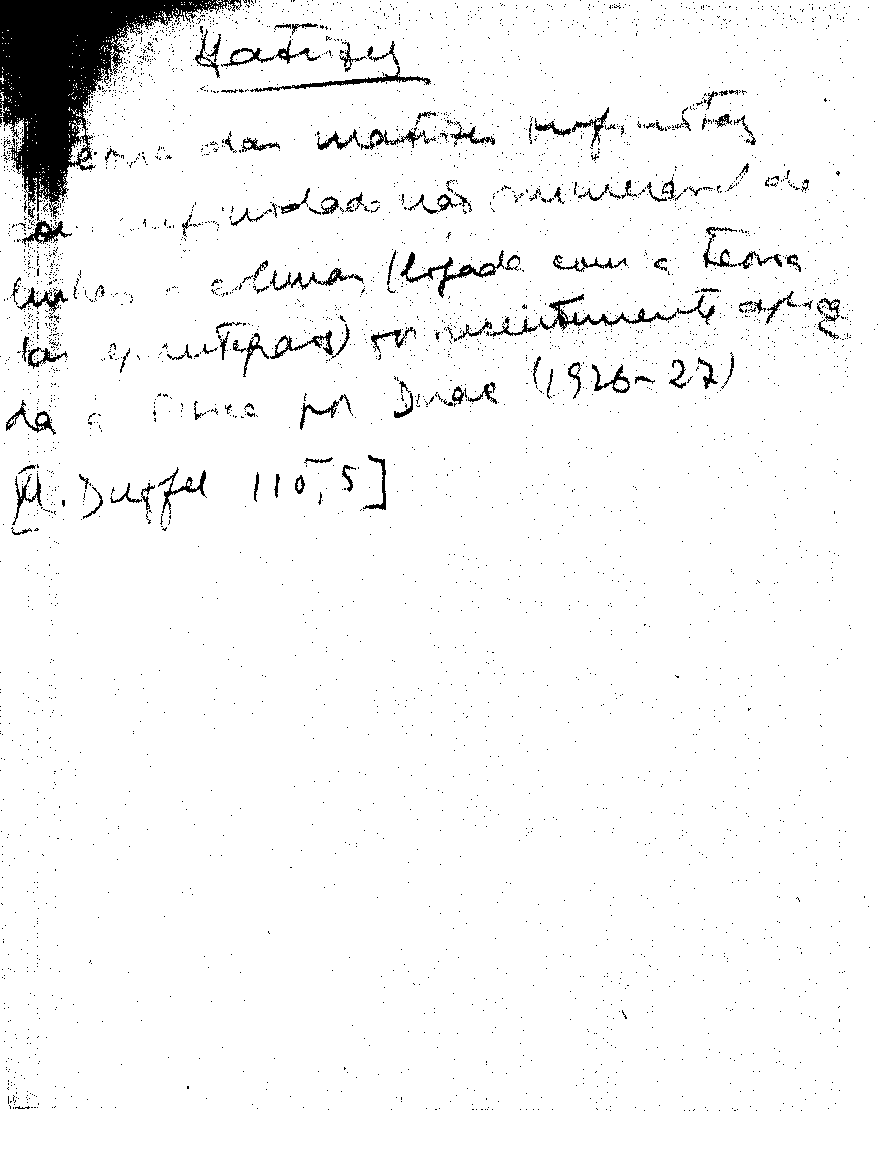 Matrizes
teoria das matrizes infinitas
com infinidade não numerável de
linhas e colunas (ligada com a teoria
das eq. integrais) foi recentemente aplica
da à Física por Dirac (1926-27)
110, 5]